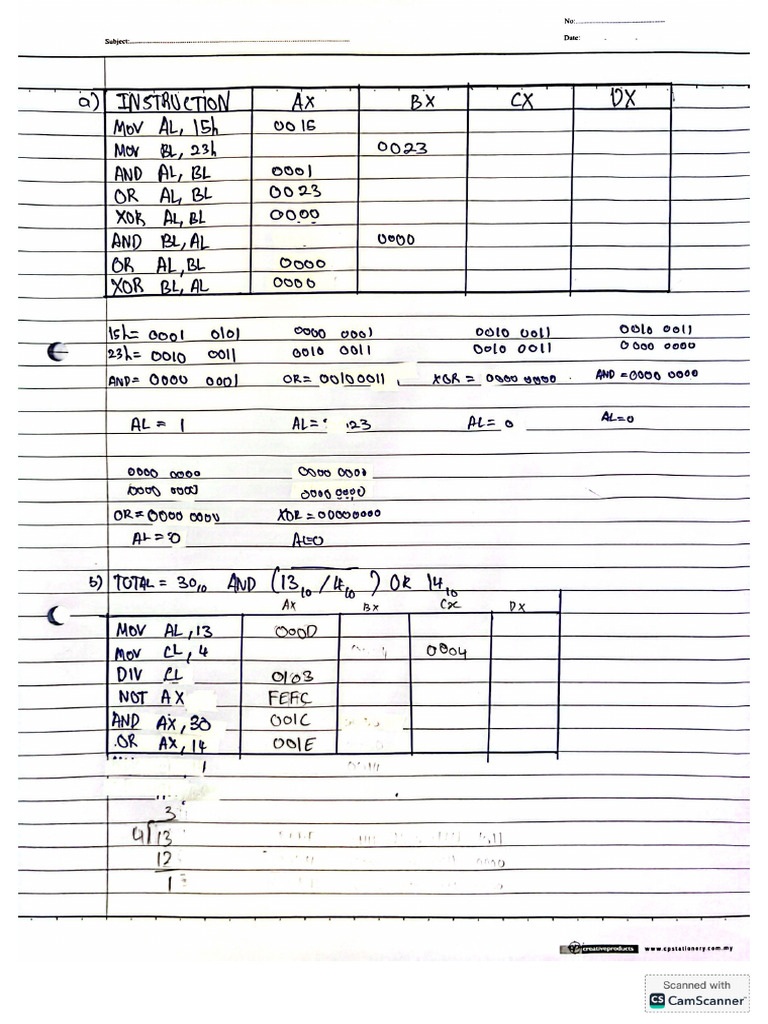 No:
Subject:
Date:
a) INSTRUCTION AX BX CX DX
MOV AL, 15h 0015
MOV BL, 23h 0023
AND AL, BL 0001
OR AL, BL 0023
XOR AL, BL 0000
AND BL, AL 0000
OR AL, BL 0000
XOR BL, AL 0000
15h= 0001 0101 0000 0001 0010 0011 0010 0011
23h= 0010 0011 0010 0011 0010 0011 0000 0000
AND= 0000 0001 OR= 00100011 XOR = 0000 0000 AND = 0000 0000
AL = 1 AL= 23 AL= 0 AL=0
0000 0000 0000 0000
0000 0000 0000 0000
OR= 0000 0000 XOR = 00000000
AL = 0 AL=0
b) TOTAL = 30₁₀ AND (13₁₀ / 4₁₀) OR 14₁₀
AX BX CX DX
MOV AL, 13 000D
MOV CL, 4 0004
DIV CL 0103
NOT AX FEFC
AND AX, 30 001C
OR AX, 14 001E
3
4 13
12
1
creativeproducts www.cpstationery.com.my
Scanned with
CS CamScanner